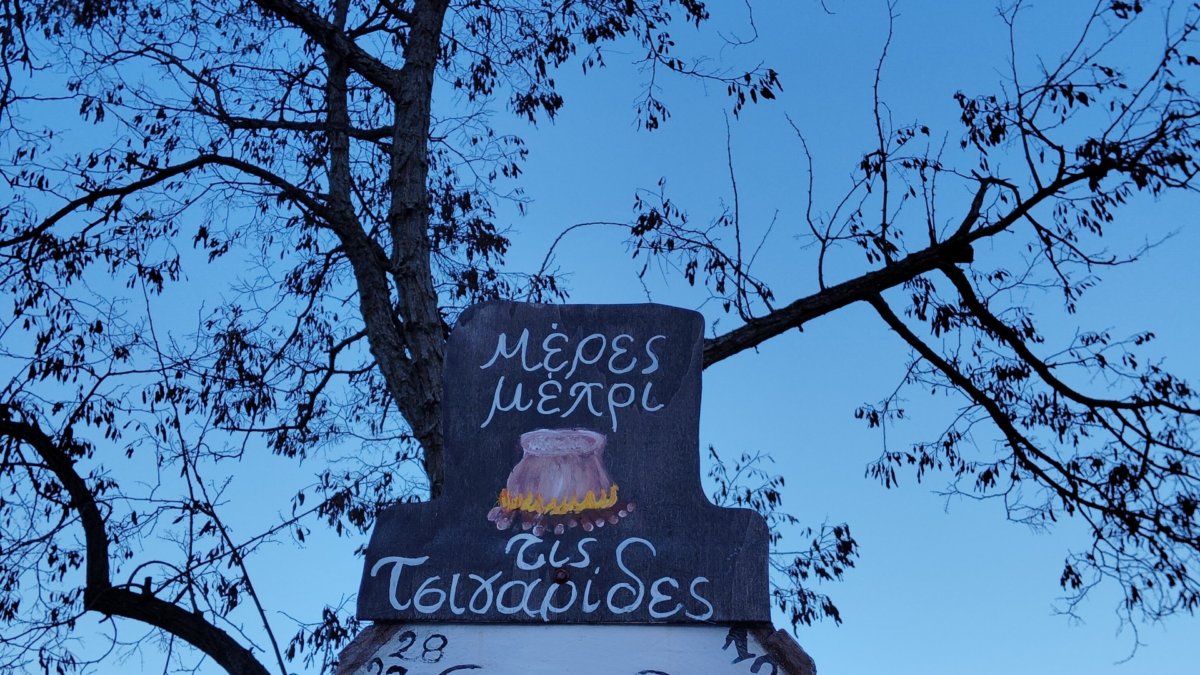 Μέρες
μέχρι
τις
Τσιγαρίδες
28
1